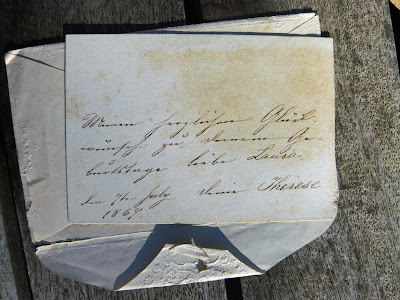 Meinen herzlichen Glück-
wunsch zu deinem Ge-
burtstage liebe Laura.
den 7ten July deine Therese